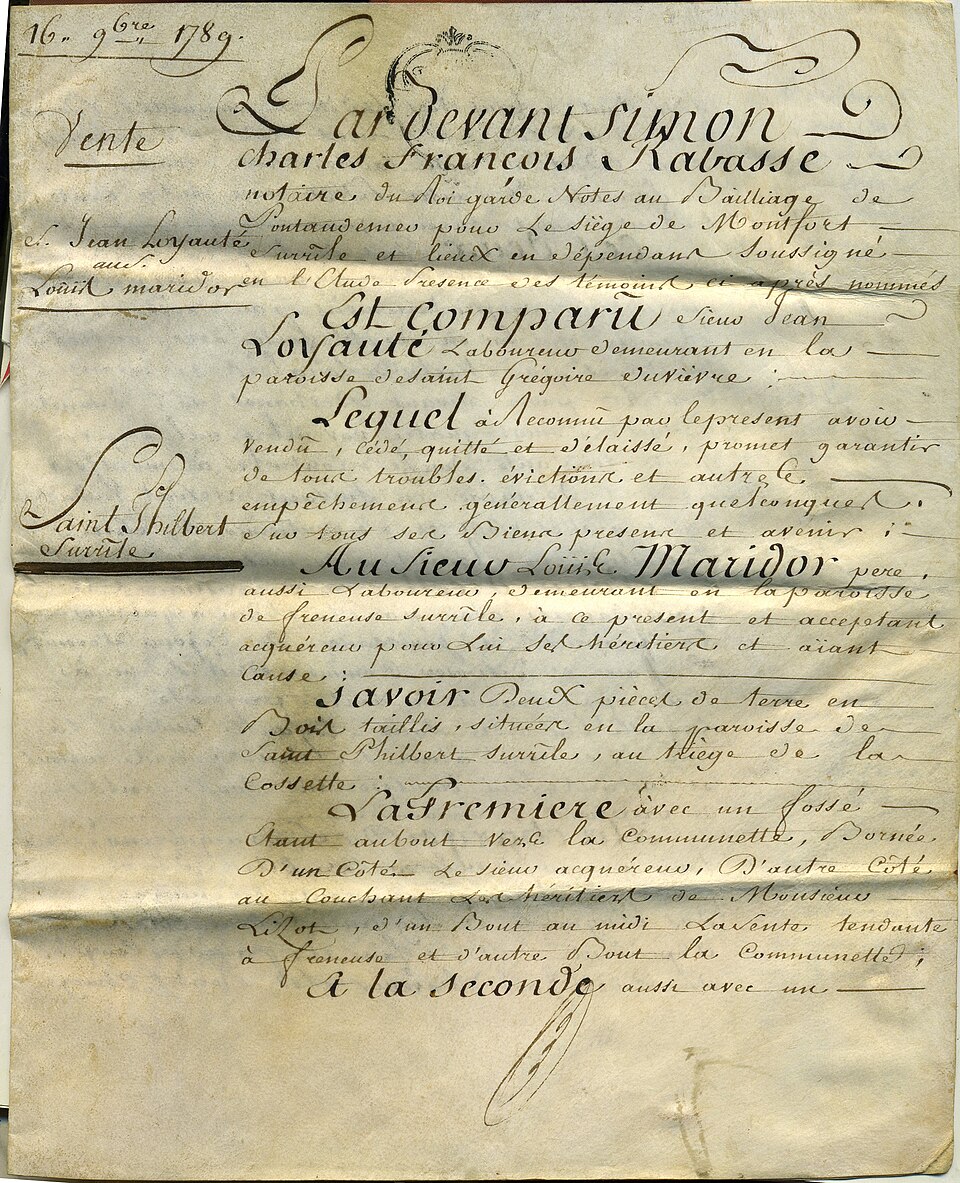 16. 9bre 1789.
Vente
sr. Jean Loyauté
aus.
Louis maridor
Saint Philbert
surrile
Par devant simon
charles François Rabasse
notaire du Roi garde Notes au Bailliage de
Pontaudemer pour Le siège de Montfort
surrile et lieux en dépendans soussigné
en l'Etude Presence des témoins ci après nommés
Est comparû sieur Jean
Loyauté Laboureur demeurant en la
paroisse desaint Grégoire duvièvre :
Lequel à Reconnû par lepresent avoir
vendû, cédé, quitté et délaissé, promet garantir
de tous troubles. évictions et autres
empêchemens générallement quelconques.
sur tous ses Biens presens et avenir :
Au sieur Loüis Maridor pere,
aussi Laboureur, demeurant en laparoisse
de freneuse surrile, à ce present et acceptant
acquéreur pour Lui ses héritiers et aïant
Cause :
savoir Deux pièces de terre en
Bois taillis, situées en la paroisse de
Saint Philbert surrile, au triège de la
Cossette :
La Premiere àvec un fossé
Etant aubout vers la Communette, Bornée
D'un Côté Le sieur acquéreur, D'autre Côté
au Couchant Les héritiers de Monsieur
Lizot, d'un Bout au midi La sente tendante
à freneuse et d'autre Bout la Communette ;
Et la seconde aussi avec un